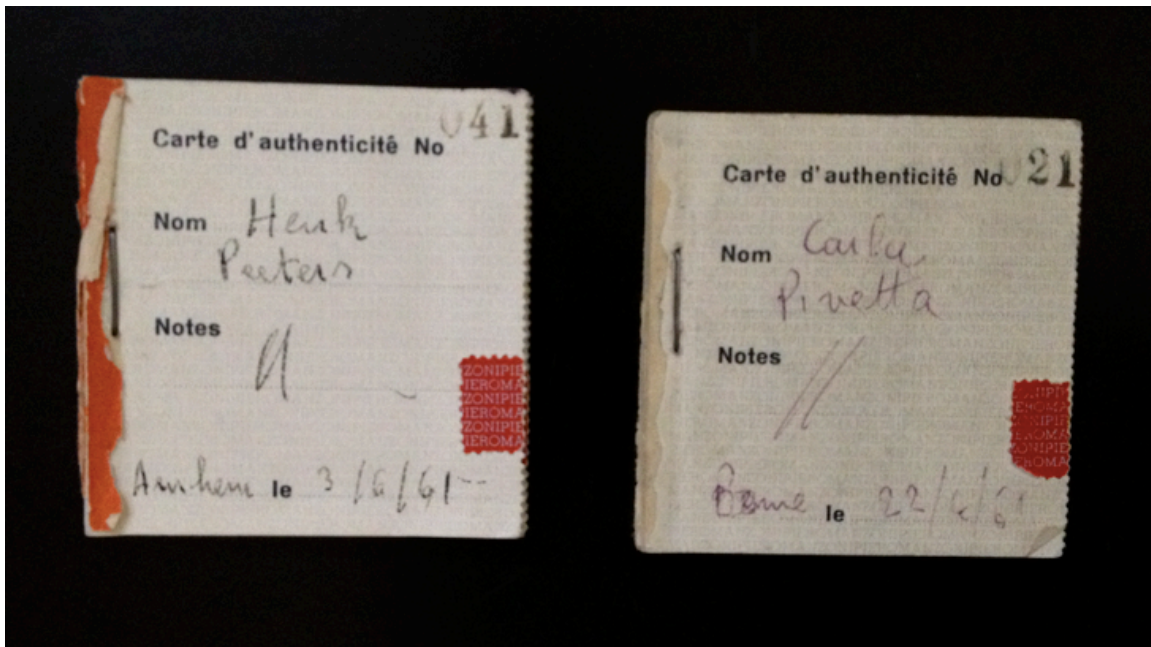 Carte d'authenticité No 041
Nom Henk
Peeters
Notes //
ZONIPIE
IEROMA
ZONIPIE
IEROMA
ZONIPIE
IEROMA
Arnhem le 3/6/61
Carte d'authenticité No 021
Nom Carla
Pivetta
Notes //
NIPIE
EROMA
NIPIE
EROMA
ZONIPIE
EROMA
Rome le 22/4/61